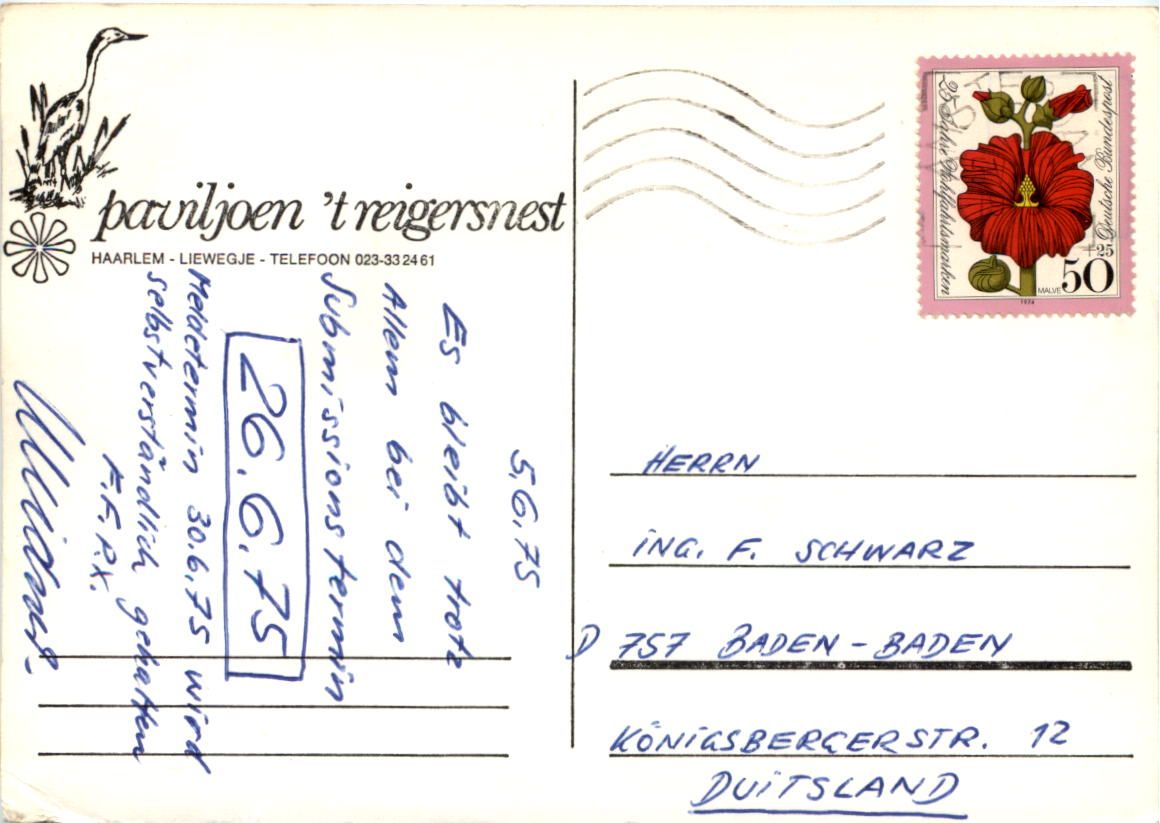 paviljoen 't reigersnest
HAARLEM - LIEWEGJE - TELEFOON 023-33 24 61
5.6.75
Es bleibt trotz
Allem bei dem
Submissionstermin
26.6.75
Meldetermin 30.6.75 wird
selbstverständlich gehalten
25 Jahre Wohlfahrtsmarken
Deutsche Bundespost
+25
50
MALVE
1974
HERRN
ING. F. SCHWARZ
D 757 BADEN-BADEN
KÖNIGSBERGERSTR. 12
DUITSLAND